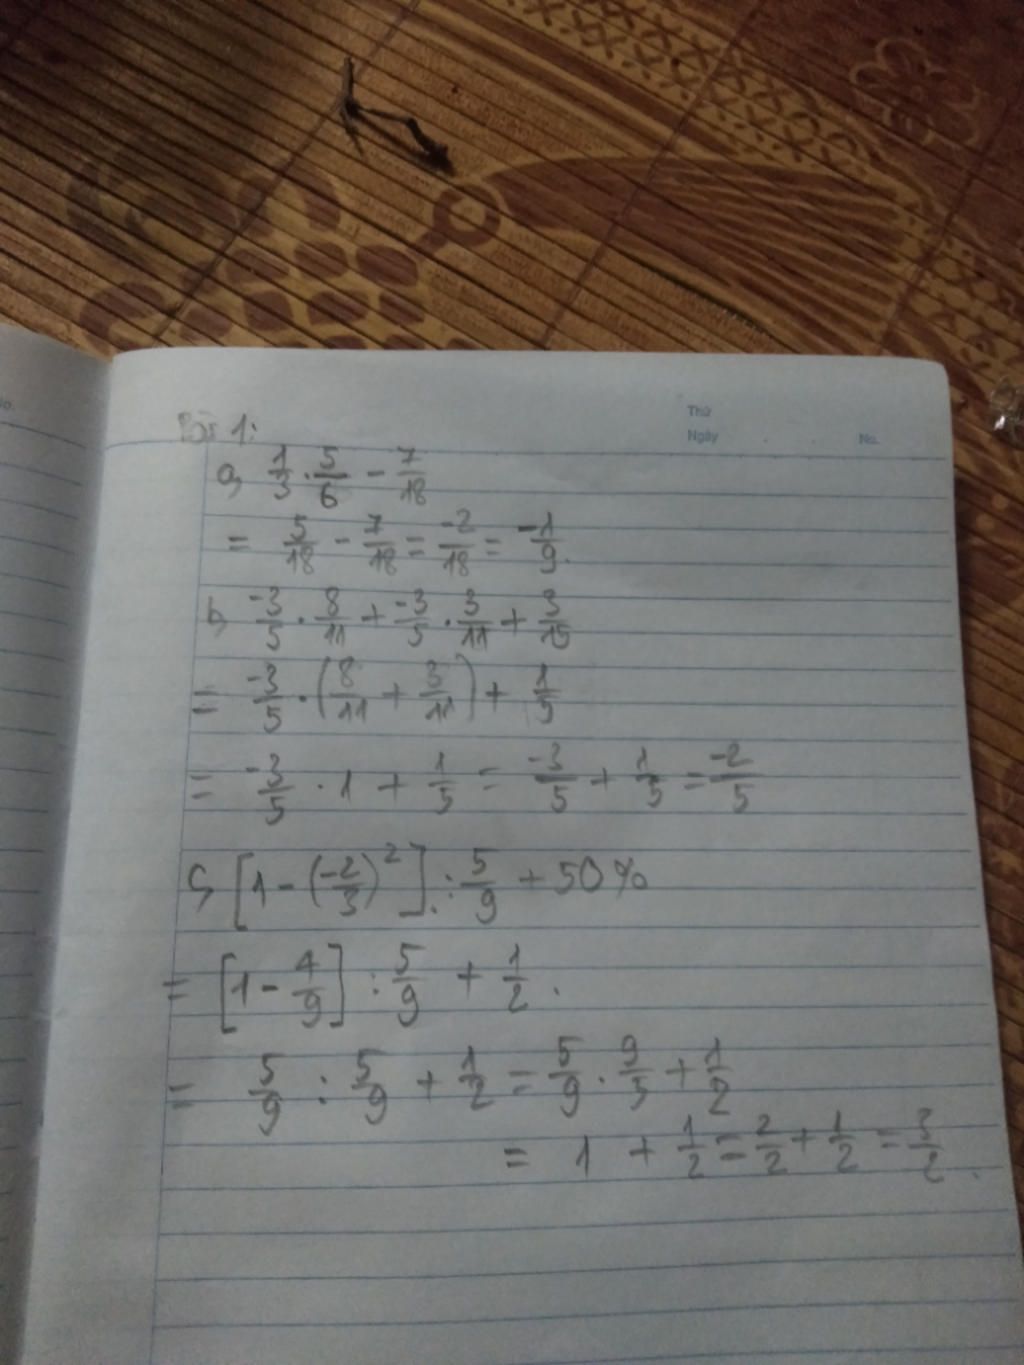 Thứ
Ngày
No.
Bài 1:
a, 1/3 . 5/6 - 7/18
= 5/18 - 7/18 = -2/18 = -1/9.
b, -3/5 . 8/11 + -3/5 . 3/11 + 3/15
= -3/5 . (8/11 + 3/11) + 1/5
= -3/5 . 1 + 1/5 = -3/5 + 1/5 = -2/5
c, [1 - (-2/3)²] : 5/9 + 50%
= [1 - 4/9] : 5/9 + 1/2.
= 5/9 : 5/9 + 1/2 = 5/9 . 9/5 + 1/2
= 1 + 1/2 = 2/2 + 1/2 = 3/2.